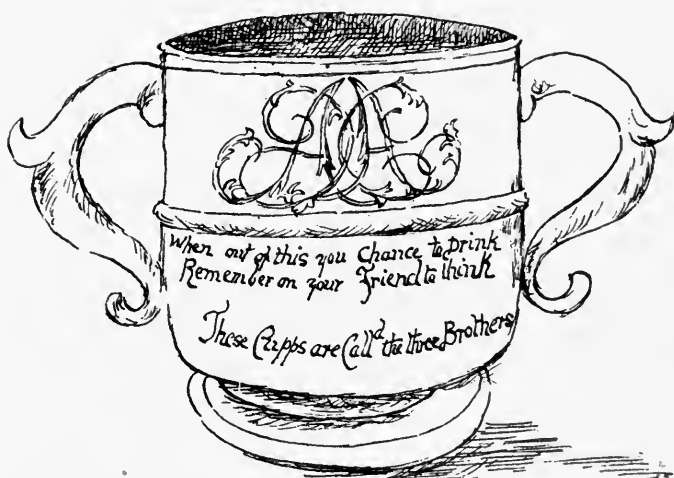 When out of this you Chance to Drink
Remember on your Friend to think
These Cupps are Call'd the three Brothers